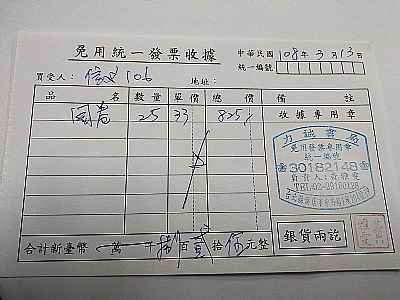 免用統一發票收據
中華民國108年3月13日
統一編號
買受人：信義106 地址：
品名 數量 單價 總價 備註
25 33 825 收據專用章
力誠書局
免用發票專用章
統一編號
30182148
負責人：
TEL:02-
合計新臺幣 萬 千 捌 百 貳 拾 伍 元整
銀貨兩訖